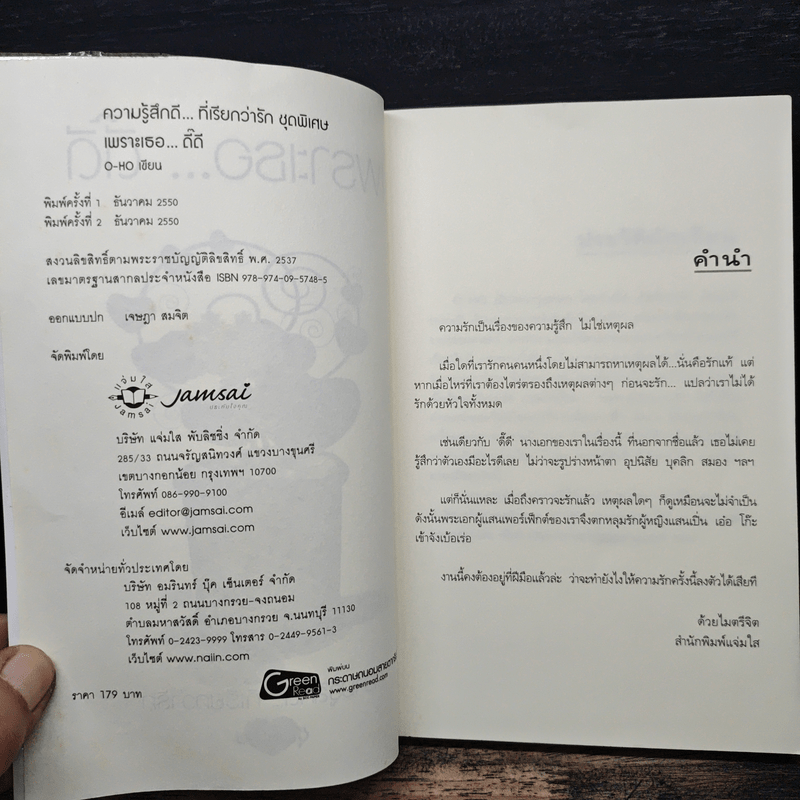 ความรู้สึกดี... ที่เรียกว่ารัก ชุดพิเศษ
เพราะเธอ... ดี๊ดี
O-HO เขียน
พิมพ์ครั้งที่ 1 ธันวาคม 2550
พิมพ์ครั้งที่ 2 ธันวาคม 2550
สงวนลิขสิทธิ์ตามพระราชบัญญัติลิขสิทธิ์ พ.ศ. 2537
เลขมาตรฐานสากลประจำหนังสือ ISBN 978-974-09-5748-5
ออกแบบปก เจษฎา สมจิต
จัดพิมพ์โดย
แจ่มใส
Jamsai
Jamsai
บริษัท แจ่มใส พับลิชชิ่ง จำกัด
285/33 ถนนจรัญสนิทวงศ์ แขวงบางขุนศรี
เขตบางกอกน้อย กรุงเทพฯ 10700
โทรศัพท์ 086-990-9100
อีเมล์ editor@jamsai.com
เว็บไซต์ www.jamsai.com
จัดจำหน่ายทั่วประเทศโดย
บริษัท อมรินทร์ บุ๊ค เซ็นเตอร์ จำกัด
108 หมู่ที่ 2 ถนนบางกรวย-จงถนอม
ตำบลมหาสวัสดิ์ อำเภอบางกรวย จ.นนทบุรี 11130
โทรศัพท์ 0-2423-9999 โทรสาร 0-2449-9561-3
เว็บไซต์ www.naiin.com
ราคา 179 บาท
Green
Read
พิมพ์บน
กระดาษถนอมสายตา
www.greenread.com
คำนำ
ความรักเป็นเรื่องของความรู้สึก ไม่ใช่เหตุผล
เมื่อใดที่เรารักคนคนหนึ่งโดยไม่สามารถหาเหตุผลได้...นั่นคือรักแท้ แต่
หากเมื่อไหร่ที่เราต้องไตร่ตรองถึงเหตุผลต่างๆ ก่อนจะรัก... แปลว่าเราไม่ได้
รักด้วยหัวใจทั้งหมด
เช่นเดียวกับ 'ดี๊ดี' นางเอกของเราในเรื่องนี้ ที่นอกจากชื่อแล้ว เธอไม่เคย
รู้สึกว่าตัวเองมีอะไรดีเลย ไม่ว่าจะรูปร่างหน้าตา อุปนิสัย บุคลิก สมอง ฯลฯ
แต่ก็นั่นแหละ เมื่อถึงคราวจะรักแล้ว เหตุผลใดๆ ก็ดูเหมือนจะไม่จำเป็น
ดังนั้นพระเอกผู้แสนเพอร์เฟ็กต์ของเราจึงตกหลุมรักผู้หญิงแสนเปิ่น เอ๋อ โก๊ะ
เข้าจังเบ้อเร่อ
งานนี้คงต้องอยู่ที่ฝีมือแล้วล่ะ ว่าจะทำยังไงให้ความรักครั้งนี้ลงตัวได้เสียที
ด้วยไมตรีจิต
สำนักพิมพ์แจ่มใส